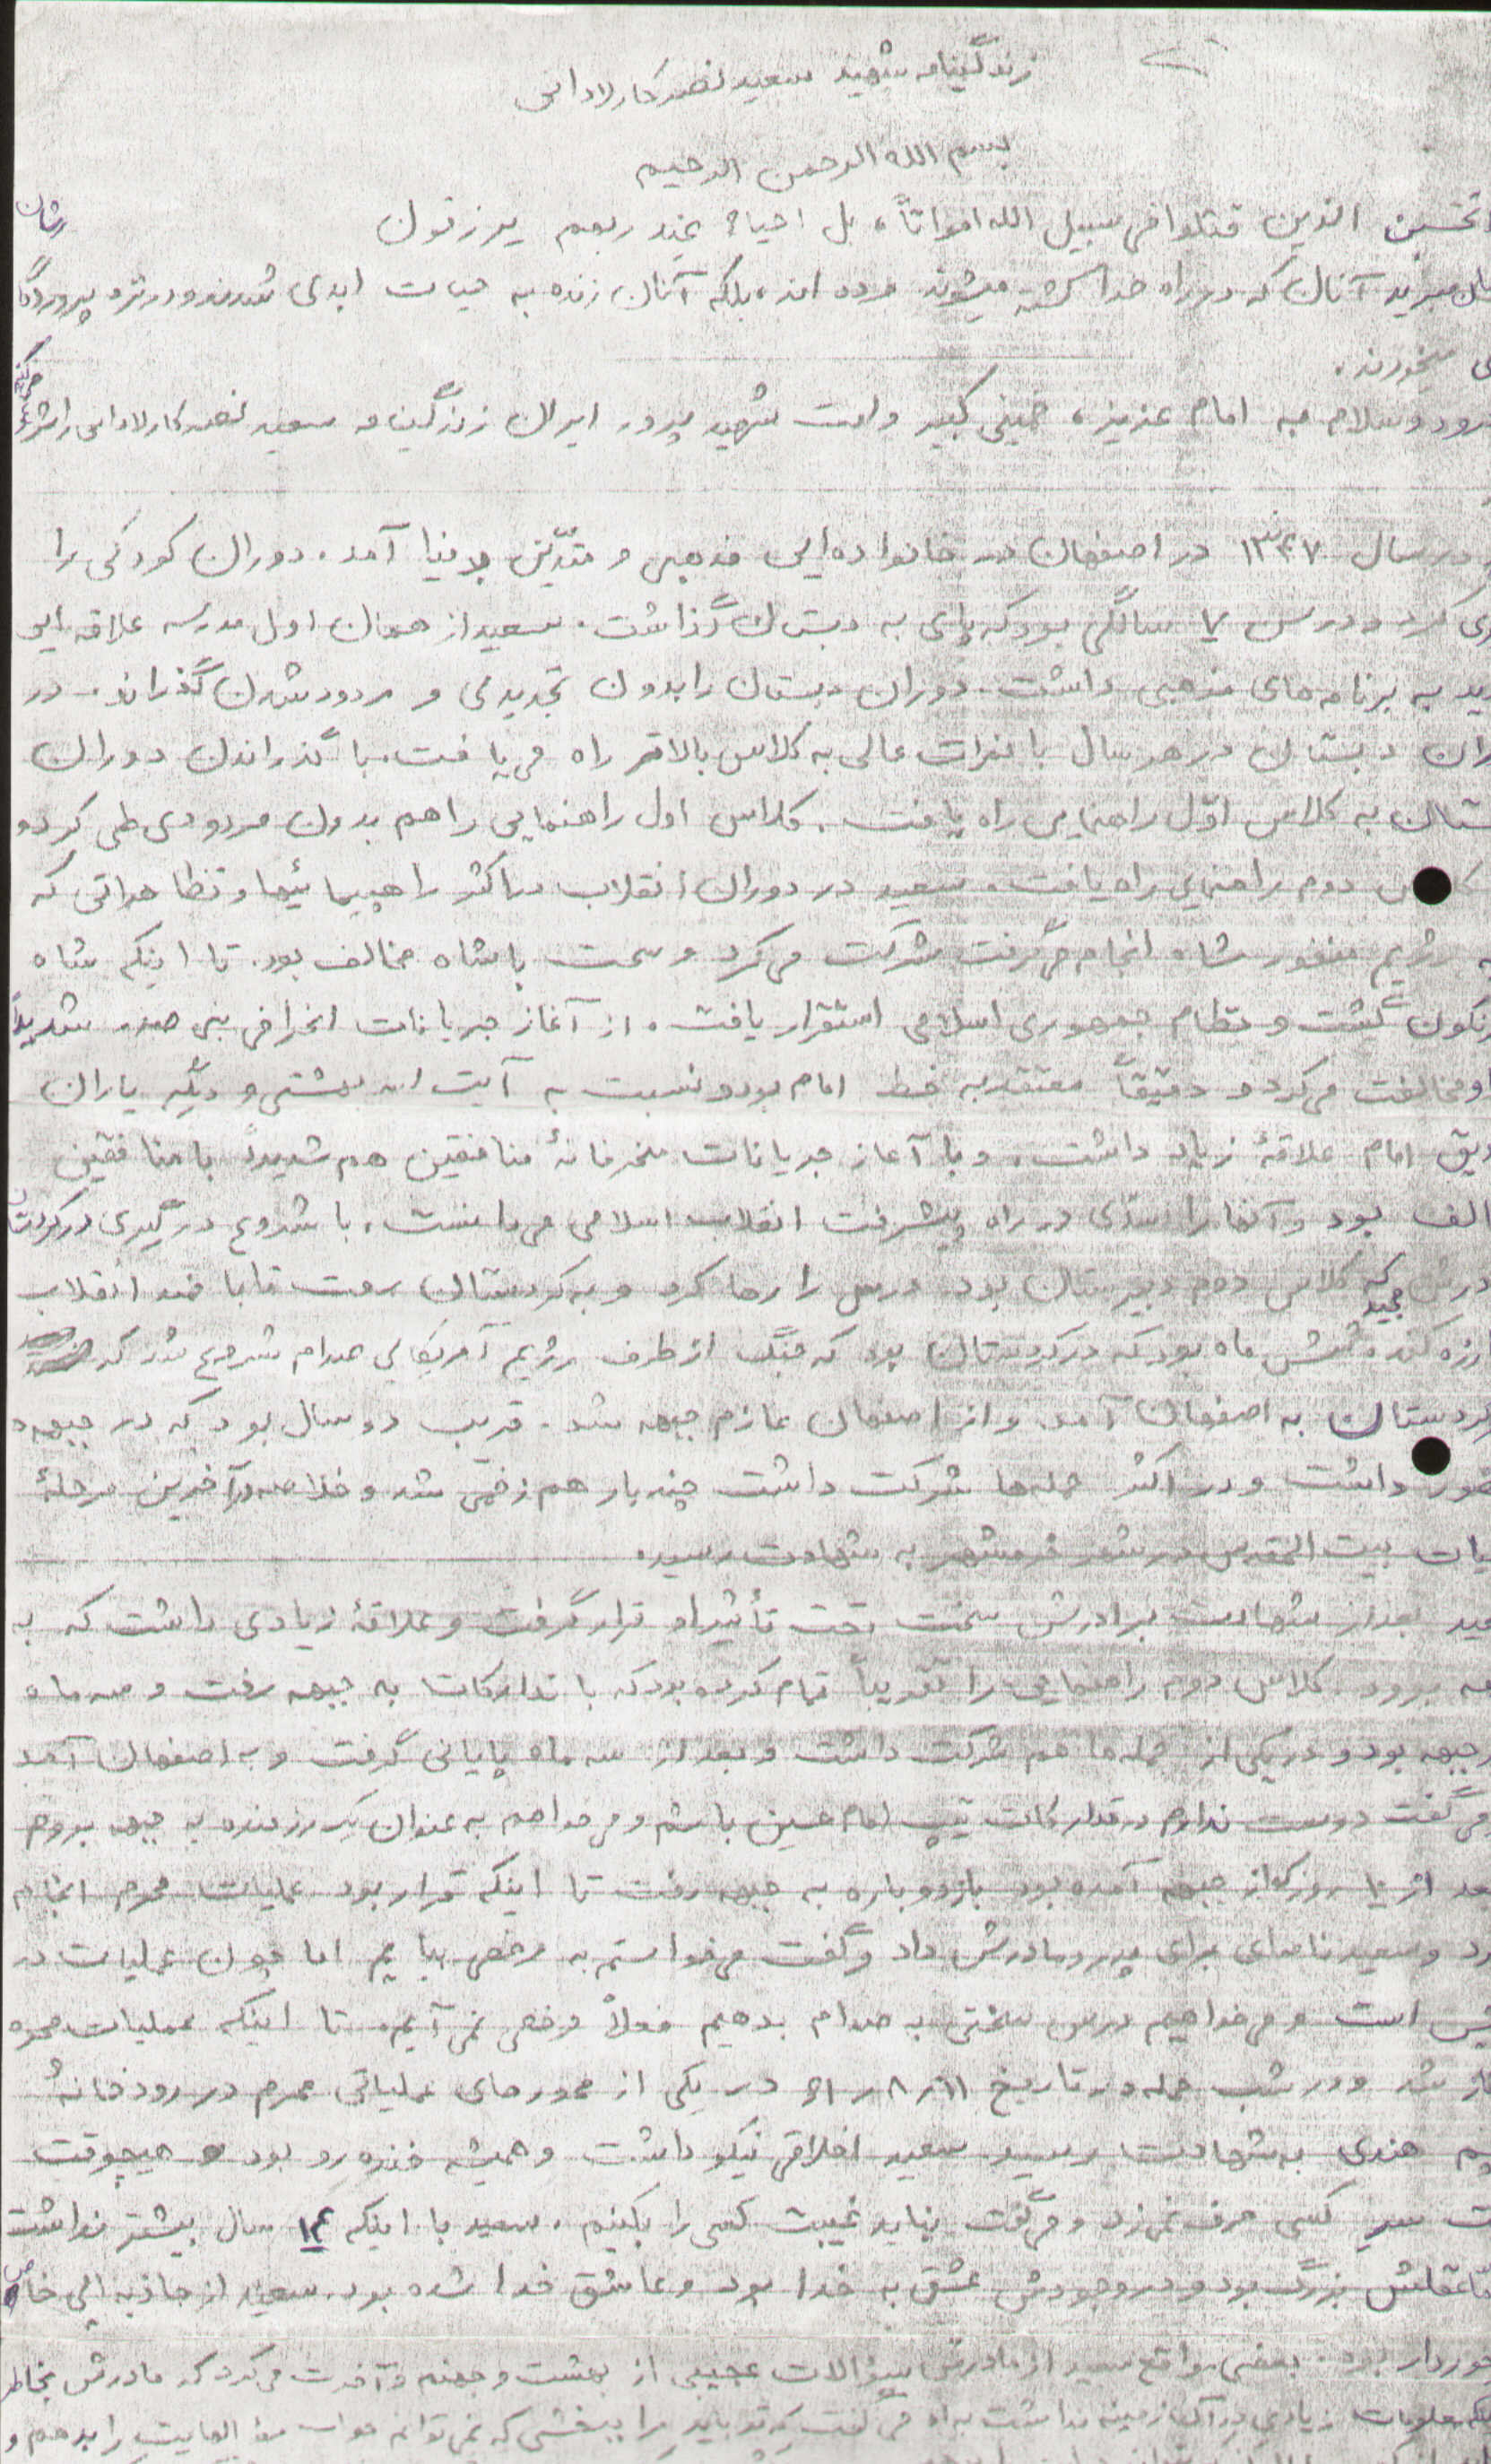 زندگینامه شهید سعید نصر کارلادانی
بسم الله الرحمن الرحیم
تحسبن الذین قتلوا فی سبیل الله امواتاً، بل احیاءٌ عند ربهم یرزقون
مبرید آنان که در راه خدا کشته میشوند مرده اند، بلکه آنان زنده به حیات ابدی شدند و در نزد پروردگا رشان
میخورند.
درود و سلام به امام عزیز، خمینی کبیر و امت شهید پرور ایران زندگینامه سعید نصر کارلادانی را شروع میکنیم
در سال ۱۳۴۷ در اصفهان در خانواده ایی مذهبی و متدیّن بدنیا آمد. دوران کودکی را
کرد و در سن ۷ سالگی بود که پای به دبستان گذاشت. سعید از همان اول مدرسه علاقه ایی
به برنامه های مذهبی داشت. دوران دبستان را بدون تجدیدی و مردود شدن گذراند. در
ران دبستان در هر سال با نمرات عالی به کلاس بالاتر راه می یافت. با گذراندن دوران
ستان به کلاس اوّل راهنمایی راه یافت. کلاس اول راهنمایی را هم بدون مردودی طی کرد و
دوم راهنمایی راه یافت. سعید در دوران انقلاب در اکثر راهپیمائیها و تظاهراتی که
رژیم منفور شاه انجام می گرفت شرکت می کرد و سخت با شاه مخالف بود. تا اینکه شاه
نگون گشت و نظام جمهوری اسلامی استقرار یافت. از آغاز جریانات انحرافی بنی صدر شدیداً
او مخالفت می کرد و دقیقاً معتقد به خط امام بود و نسبت به آیت اله بهشتی و دیگر یاران
امام علاقۀ زیاد داشت. و با آغاز جریانات منحرفانۀ منافقین هم شدیداً با منافقین
الف بود و آنها را سدّی در راه پیشرفت انقلاب اسلامی می دانست. با شروع درگیری در کردستان
درش مجید که کلاس دوم دبیرستان بود. درس را رها کرد و به کردستان رفت تا با ضد انقلاب
ارزه کند. شش ماه بود که در کردستان بود که جنگ از طرف رژیم آمریکایی صدام شروع شد که
کردستان به اصفهان آمد و از اصفهان عازم جبهه شد. قریب دو سال بود که در جبهه
ضور داشت و در اکثر حمله ها شرکت داشت چند بار هم زخمی شد و خلاصه در آخرین مرحلۀ
یات بیت المقدس در شهر خرمشهر به شهادت رسید.
عید بعد از شهادت برادرش سخت تحت تأثیر او قرار گرفت و علاقۀ زیادی داشت که به
هه برود. کلاس دوم راهنمایی را تقریباً تمام کرده بود که با تدارکات به جبهه رفت و سه ماه
جبهه بود و در یکی از حمله ها هم شرکت داشت و بعد از سه ماه پایانی گرفت و به اصفهان آمد
می گفت دوست ندارم در تدارکات تیپ امام حسین باشم و می خواهم به عنوان یک رزمنده به جبهه بروم
بعد از ۱۰ روز که از جبهه آمده بود باز دوباره به جبهه رفت تا اینکه قرار بود عملیات محرم انجام
رد و سعید نامه ای برای پدر و مادرش داد و گفت می خواستم به مرخصی بیایم اما چون عملیات در
پیش است و می خواهیم درس سختی به صدام بدهیم فعلاً مرخصی نمی آیم. تا اینکه عملیات محرم
غاز شد و در شب حمله در تاریخ ۱۱ر۸ر۶۱ در یکی از محورهای عملیاتی محرم در رودخانۀ
هندی به شهادت رسید. سعید اخلاقی نیکو داشت و همیشه خنده رو بود و هیچوقت
ت سر کسی حرف نمی زد و می گفت نباید غیبت کسی را بکنیم. سعید با اینکه ۱۴ سال بیشتر نداشت
عقلش بزرگ بود و در وجودش عشق به خدا بود و عاشق خدا شده بود. سعید از جاذبه ایی خاص
خوردار بود. بعضی مواقع سعید از مادرش سؤالات عجیبی از بهشت و جهنم و آخرت می کرد که مادرش بخاطر
معلومات زیادی در آن زمینه نداشت به او می گفت که تو باید مرا ببخشی که نمی توانم جواب سؤالهایت را بدهم و